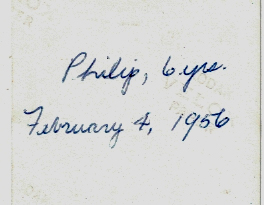 Philip, 6 yrs.
February 4, 1956